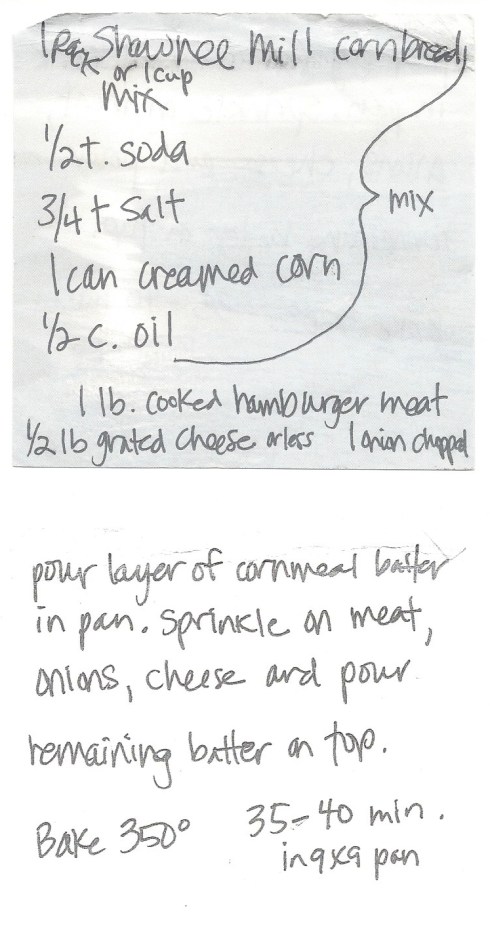 1 Pack Shawnee Mill cornbread
or 1 cup
Mix
1/2 t. soda
3/4 t salt
mix
1 can creamed corn
1/2 c. oil
1 lb. cooked hamburger meat
1/2 lb grated cheese or less 1 onion chopped
pour layer of cornmeal batter
in pan. Sprinkle on meat,
onions, cheese and pour
remaining batter on top.
Bake 350° 35-40 min.
in 9x9 pan